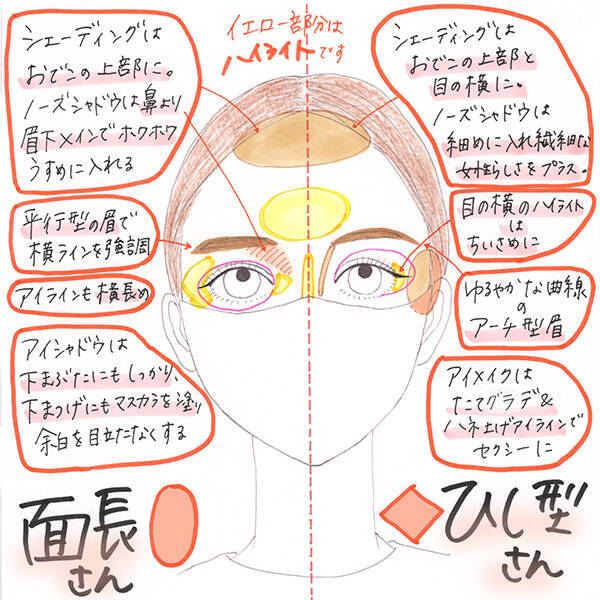 イエロー部分は
ハイライトです
シェーディングは
おでこの上部に。
ノーズシャドウは鼻より
眉下メインでホクホワ
うすめに入れる
平行型の眉で
横ラインを強調
アイラインも横長め
アイシャドウは
下まぶたにもしっかり、
下まつげにもマスカラを塗り
余白を目立たなくする
面長
さん
シェーディングは
おでこの上部と
目の横に。
ノーズシャドウは
細めに入れ繊細な
女性らしさをプラス。
目の横のハイライトは
ちいさめに
ゆるやかな曲線の
アーチ型眉
アイメイクは
たてグラデ&
ハネ上げアイラインで
セクシーに
ひし型
さん